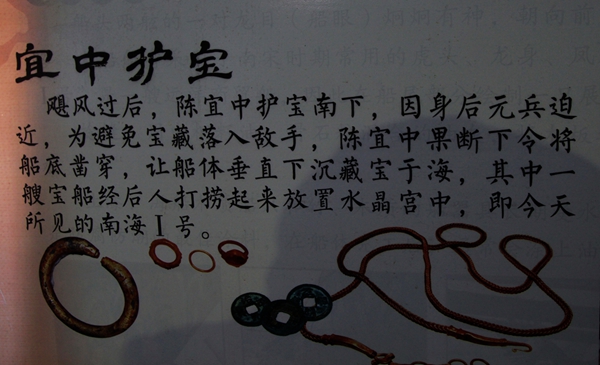 宜中护宝
飓风过后，陈宜中护宝南下，因身后元兵迫
近，为避免宝藏落入敌手，陈宜中果断下令将
船底凿穿，让船体垂直下沉藏宝于海，其中一
艘宝船经后人打捞起来放置水晶宫中，即今天
所见的南海Ⅰ号。